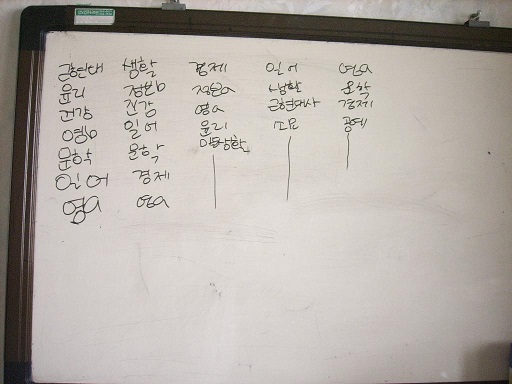 근현대 생활 경제 일어 영a
윤리 정보b 적분a 생활 문학
건강 건강 영a 근현대사 경제
영b 일어 윤리 공예
문학 문학
일어 경제
영a 영a